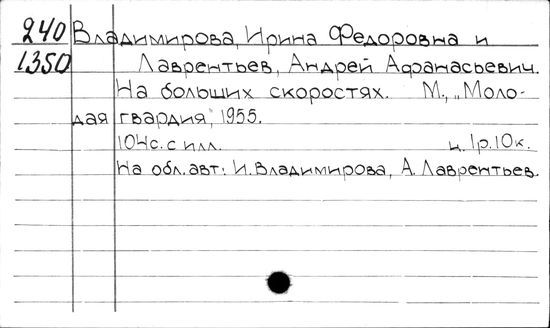 240 Владимирова, Ирина Федоровна и
1350 Лаврентьев, Андрей Афанасьевич.
На больших скоростях. М., „Моло-
дая гвардия", 1955.
104с. с илл. ц. 1р.10к.
На обл. авт: И. Владимирова, А. Лаврентьев.